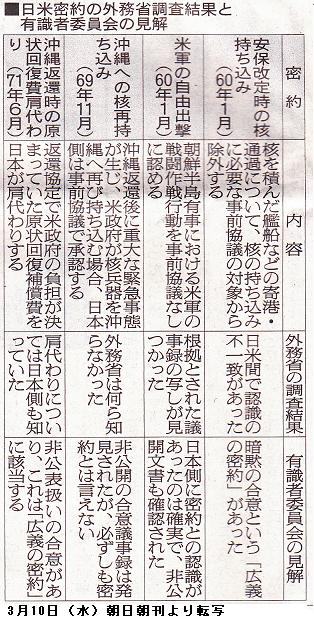 ■日米密約の外務省調査結果と
有識者委員会の見解
密約
安保改定時の核
持ち込み
(60年1月)
米軍の自由出撃
(60年1月)
沖縄への核再持
ち込み
(69年11月)
沖縄返還時の原
状回復費肩代わ
り(71年6月)
内容
核を積んだ艦船などの寄港・
通過について、核の持ち込み
に必要な事前協議の対象から
除外する
朝鮮半島有事における米軍の
戦闘作戦行動を事前協議なし
に認める
沖縄返還後に重大な緊急事態
が生じ、米政府が核兵器を沖
縄へ再び持ち込む場合、日本
側は事前協議で承認する
返還協定で米政府の負担が決
まっていた原状回復補償費を
日本が肩代わりする
外務省の調査結果
日米間で認識の
不一致があった
根拠とされた議
事録の写しが見
つかった
外務省は何ら知
らなかった
肩代わりについ
ては日本側も知
っていた
有識者委員会の見解
暗黙の合意という「広義
の密約」があった
日本側に密約との認識が
あったのは確実で、非公
開文書も確認された
非公開の合意議事録は発
見されたが、必ずしも密
約とは言えない
非公表扱いの合意があ
り、これは「広義の密約」
に該当する
3月10日(水)朝日朝刊より転写